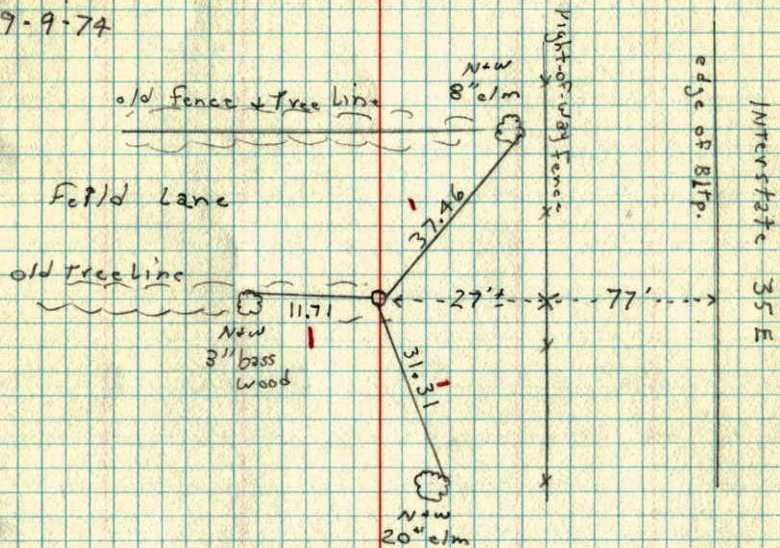 9-9-74
N+W
8" elm
old fence + Tree Line
right-of-way fence
edge of Bltp.
Interstate 35 E
Feild Lane
37.46
old Tree Line
11.71
27'±
77'
N+W
3" bass
wood
31.31
N+W
20" elm